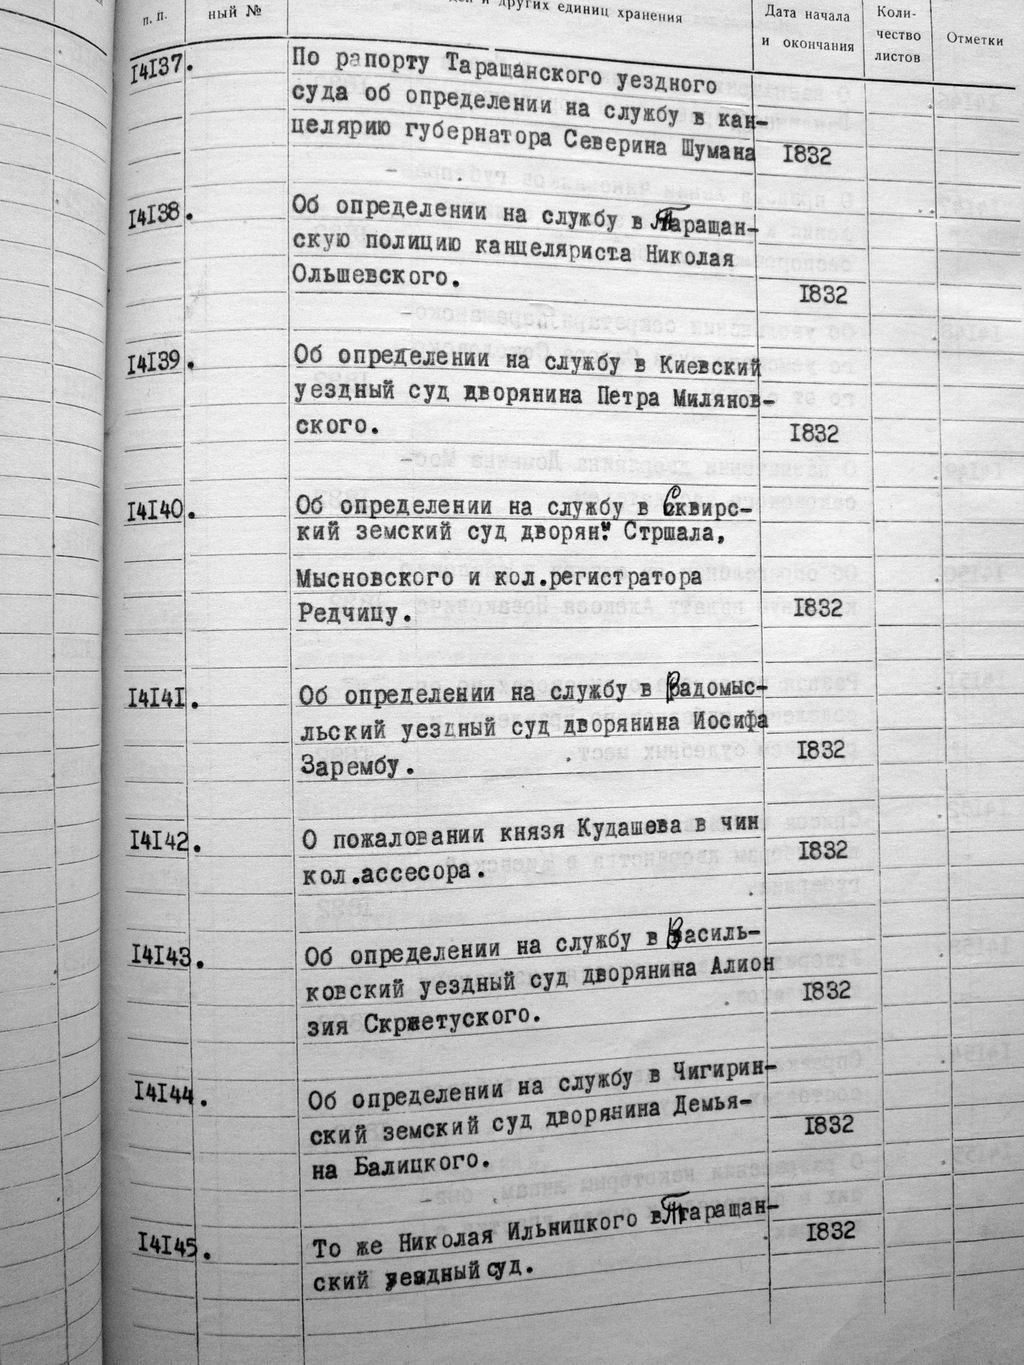 п. п.
ный №
и других единиц хранения
Дата начала
и окончания
Коли-
чество
листов
Отметки
14137.
По рапорту Таращанского уездного
суда об определении на службу в кан-
целярию губернатора Северина Шумана
1832
14138.
Об определении на службу в Таращан-
скую полицию канцеляриста Николая
Ольшевского.
1832
14139.
Об определении на службу в Киевский
уездный суд дворянина Петра Миляновского-
ского.
1832
14140.
Об определении на службу в Сквирс-
кий земский суд дворян: Стршала,
Мысновского и кол.регистратора
Редчицу.
1832
14141.
Об определении на службу в Радомыс-
льский уездный суд дворянина Иосифа
Зарембу.
1832
14142.
О пожаловании князя Кудашева в чин
кол.ассесора.
1832
14143.
Об определении на службу в Василь-
ковский уездный суд дворянина Алион
зия Скржетуского.
1832
14144.
Об определении на службу в Чигирин-
ский земский суд дворянина Демья-
на Балицкого.
1832
14145.
То же Николая Ильницкого в Таращан-
ский уездный суд.
1832